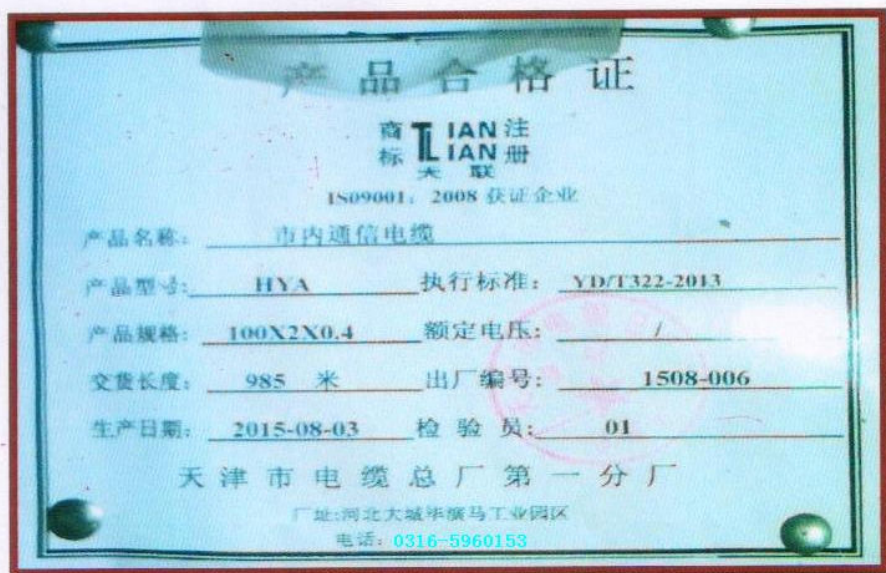 产品合格证
商标 TLIAN LIAN 注册
天联
ISO9001：2008 获证企业
产品名称：市内通信电缆
产品型号：HYA 执行标准：YD/T322-2013
产品规格：100X2X0.4 额定电压：/
交货长度：985 米 出厂编号：1508-006
生产日期：2015-08-03 检验员：01
天津市电缆总厂第一分厂
厂址：河北大城毕演马工业园区
电话：0316-5960153